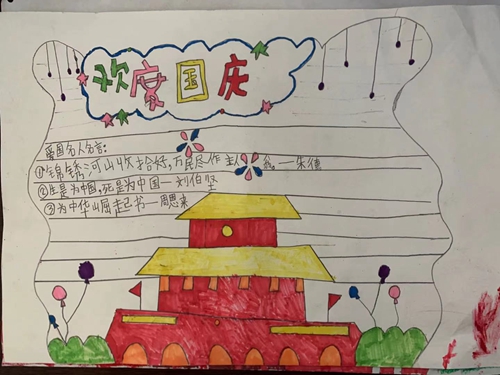 欢度国庆
爱国名人名言:
①锦锈河山收拾好,万民尽作主人翁。—朱德
②生是为中国,死是为中国—刘伯坚
③为中华崛起书—周恩来